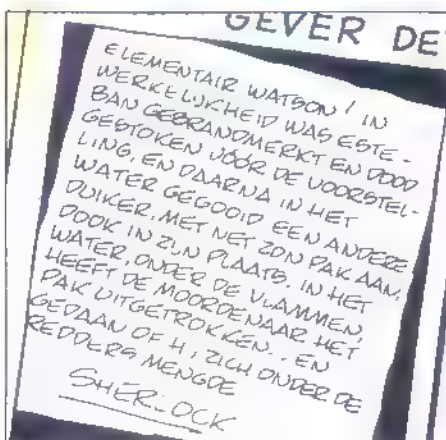 GEVER DE
ELEMENTAIR WATSON! IN
WERKELIJKHEID WAS ESTE-
BAN GEBRANDMERKT EN DOOD
GESTOKEN VÓÓR DE VOORSTEL-
LING, EN DAARNA IN HET
WATER GEGOOID EEN ANDERE
DUIKER, MET NET ZON PAK AAN,
DOOK IN ZIJN PLAATS. IN HET
WATER, ONDER DE VLAMMEN,
HEEFT DE MOORDENAAR HET
PAK UITGETROKKEN.. EN
GEDAAN OF HIJ ZICH ONDER DE
REDDERS MENGDE
SHERLOCK